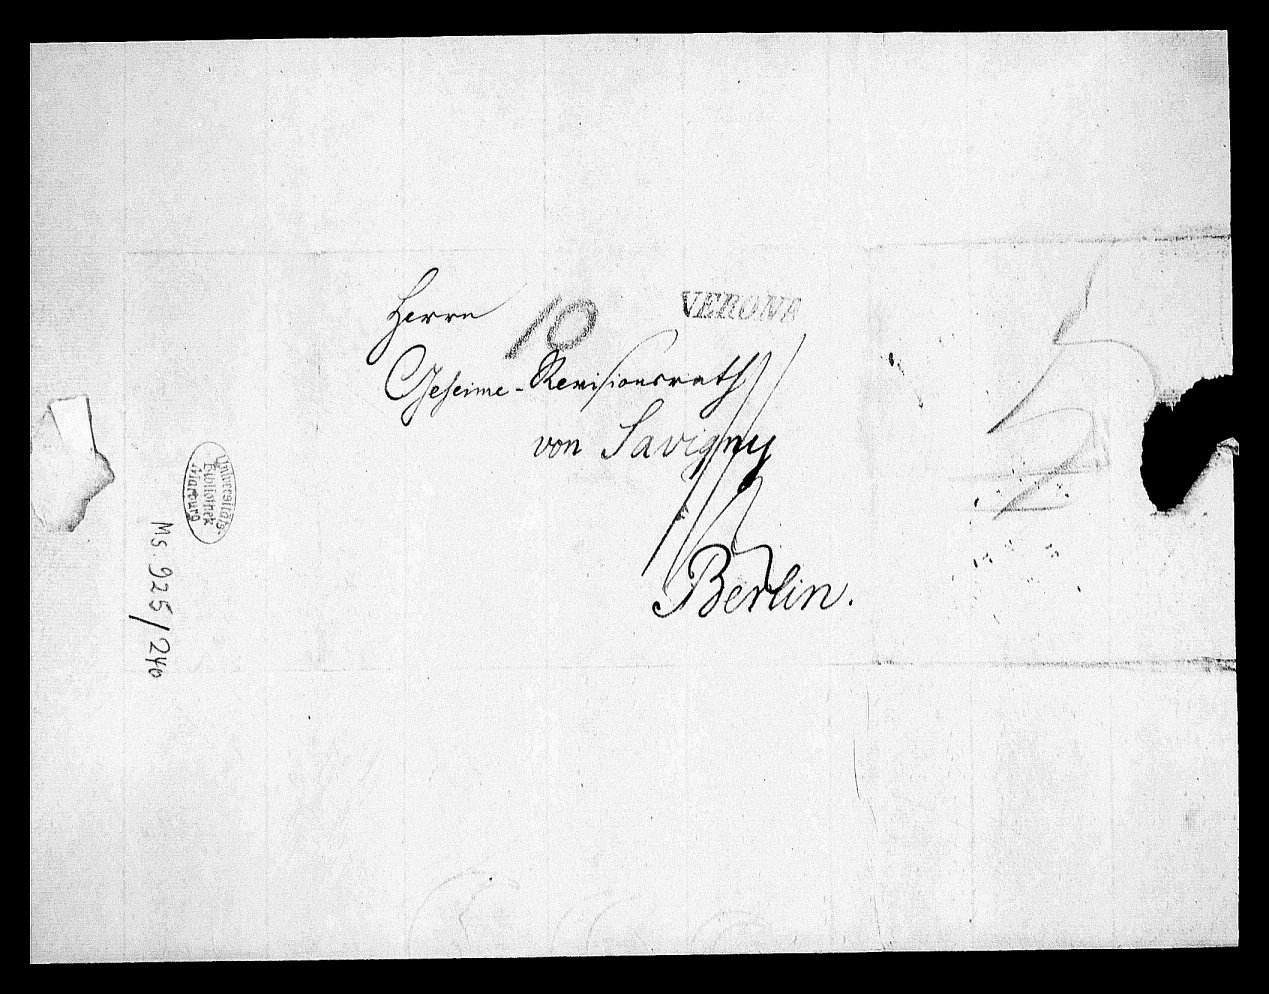 Herrn
10
VERONA
Geheime-Revisionsrath
von Savigny
Berlin.
Universitäts-
Bibliothek
Marburg
Ms. 925/240